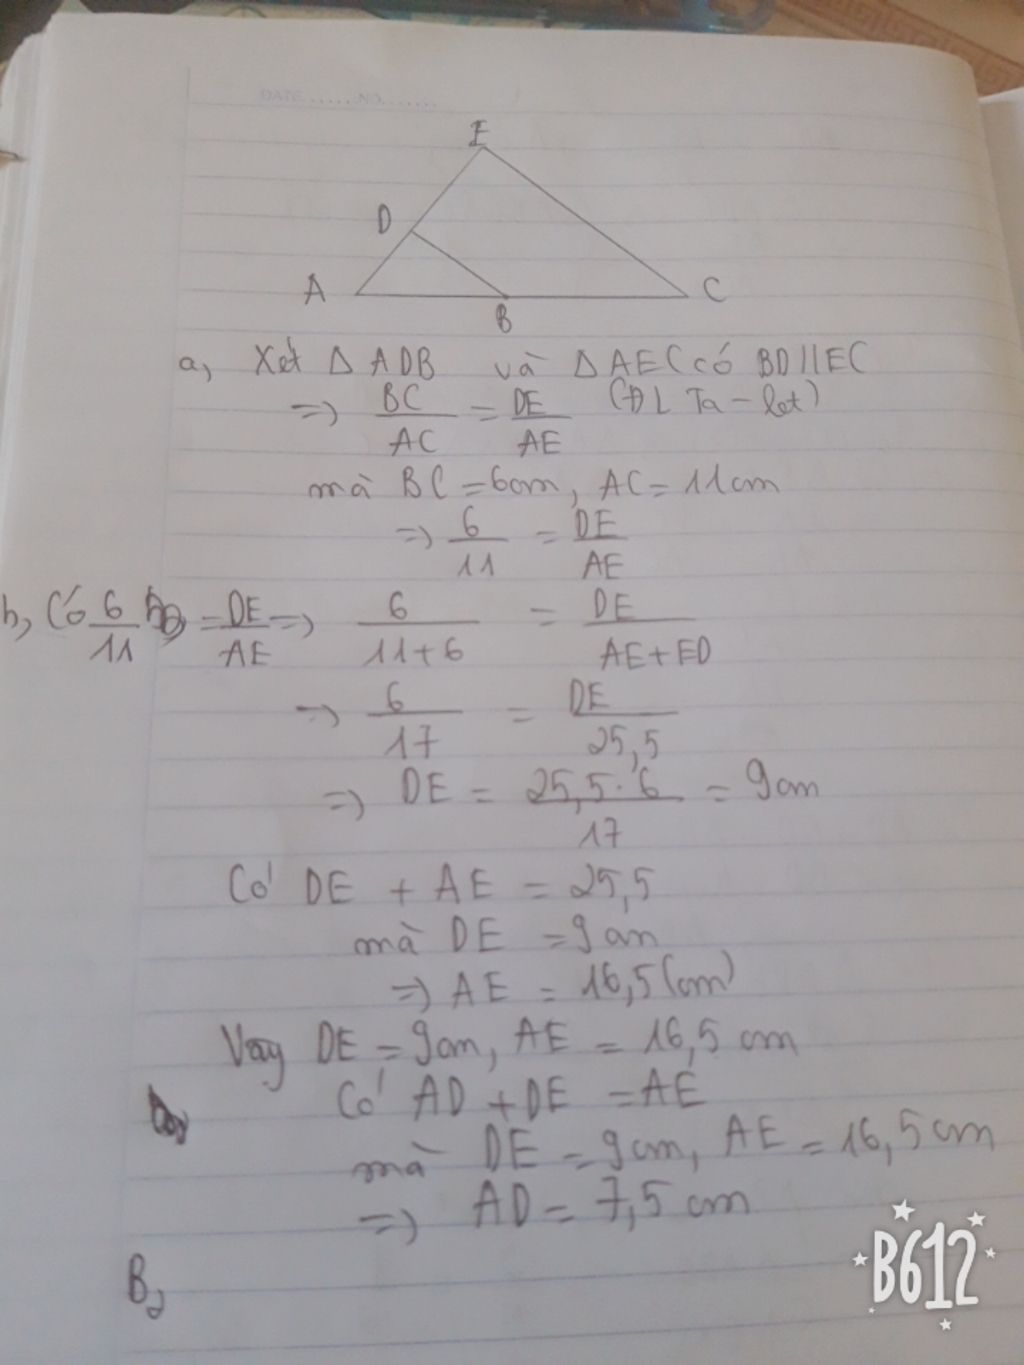 DATE ...... NO. ......
E
D
A
B
C
a, Xét Δ ADB và Δ AEC có BD // EC
=> BC/AC = DE/AE (ĐL Ta-let)
mà BC = 6cm, AC = 11cm
=> 6/11 = DE/AE
b, Có 6/11 = DE/AE => 6/(11+6) = DE/(AE+ED)
=> 6/17 = DE/25,5
=> DE = 25,5·6/17 = 9cm
Có DE + AE = 25,5
mà DE = 9cm
=> AE = 16,5(cm)
Vậy DE = 9cm, AE = 16,5 cm
Có AD + DE = AE
mà DE = 9cm, AE = 16,5cm
=> AD = 7,5 cm
B,
B612